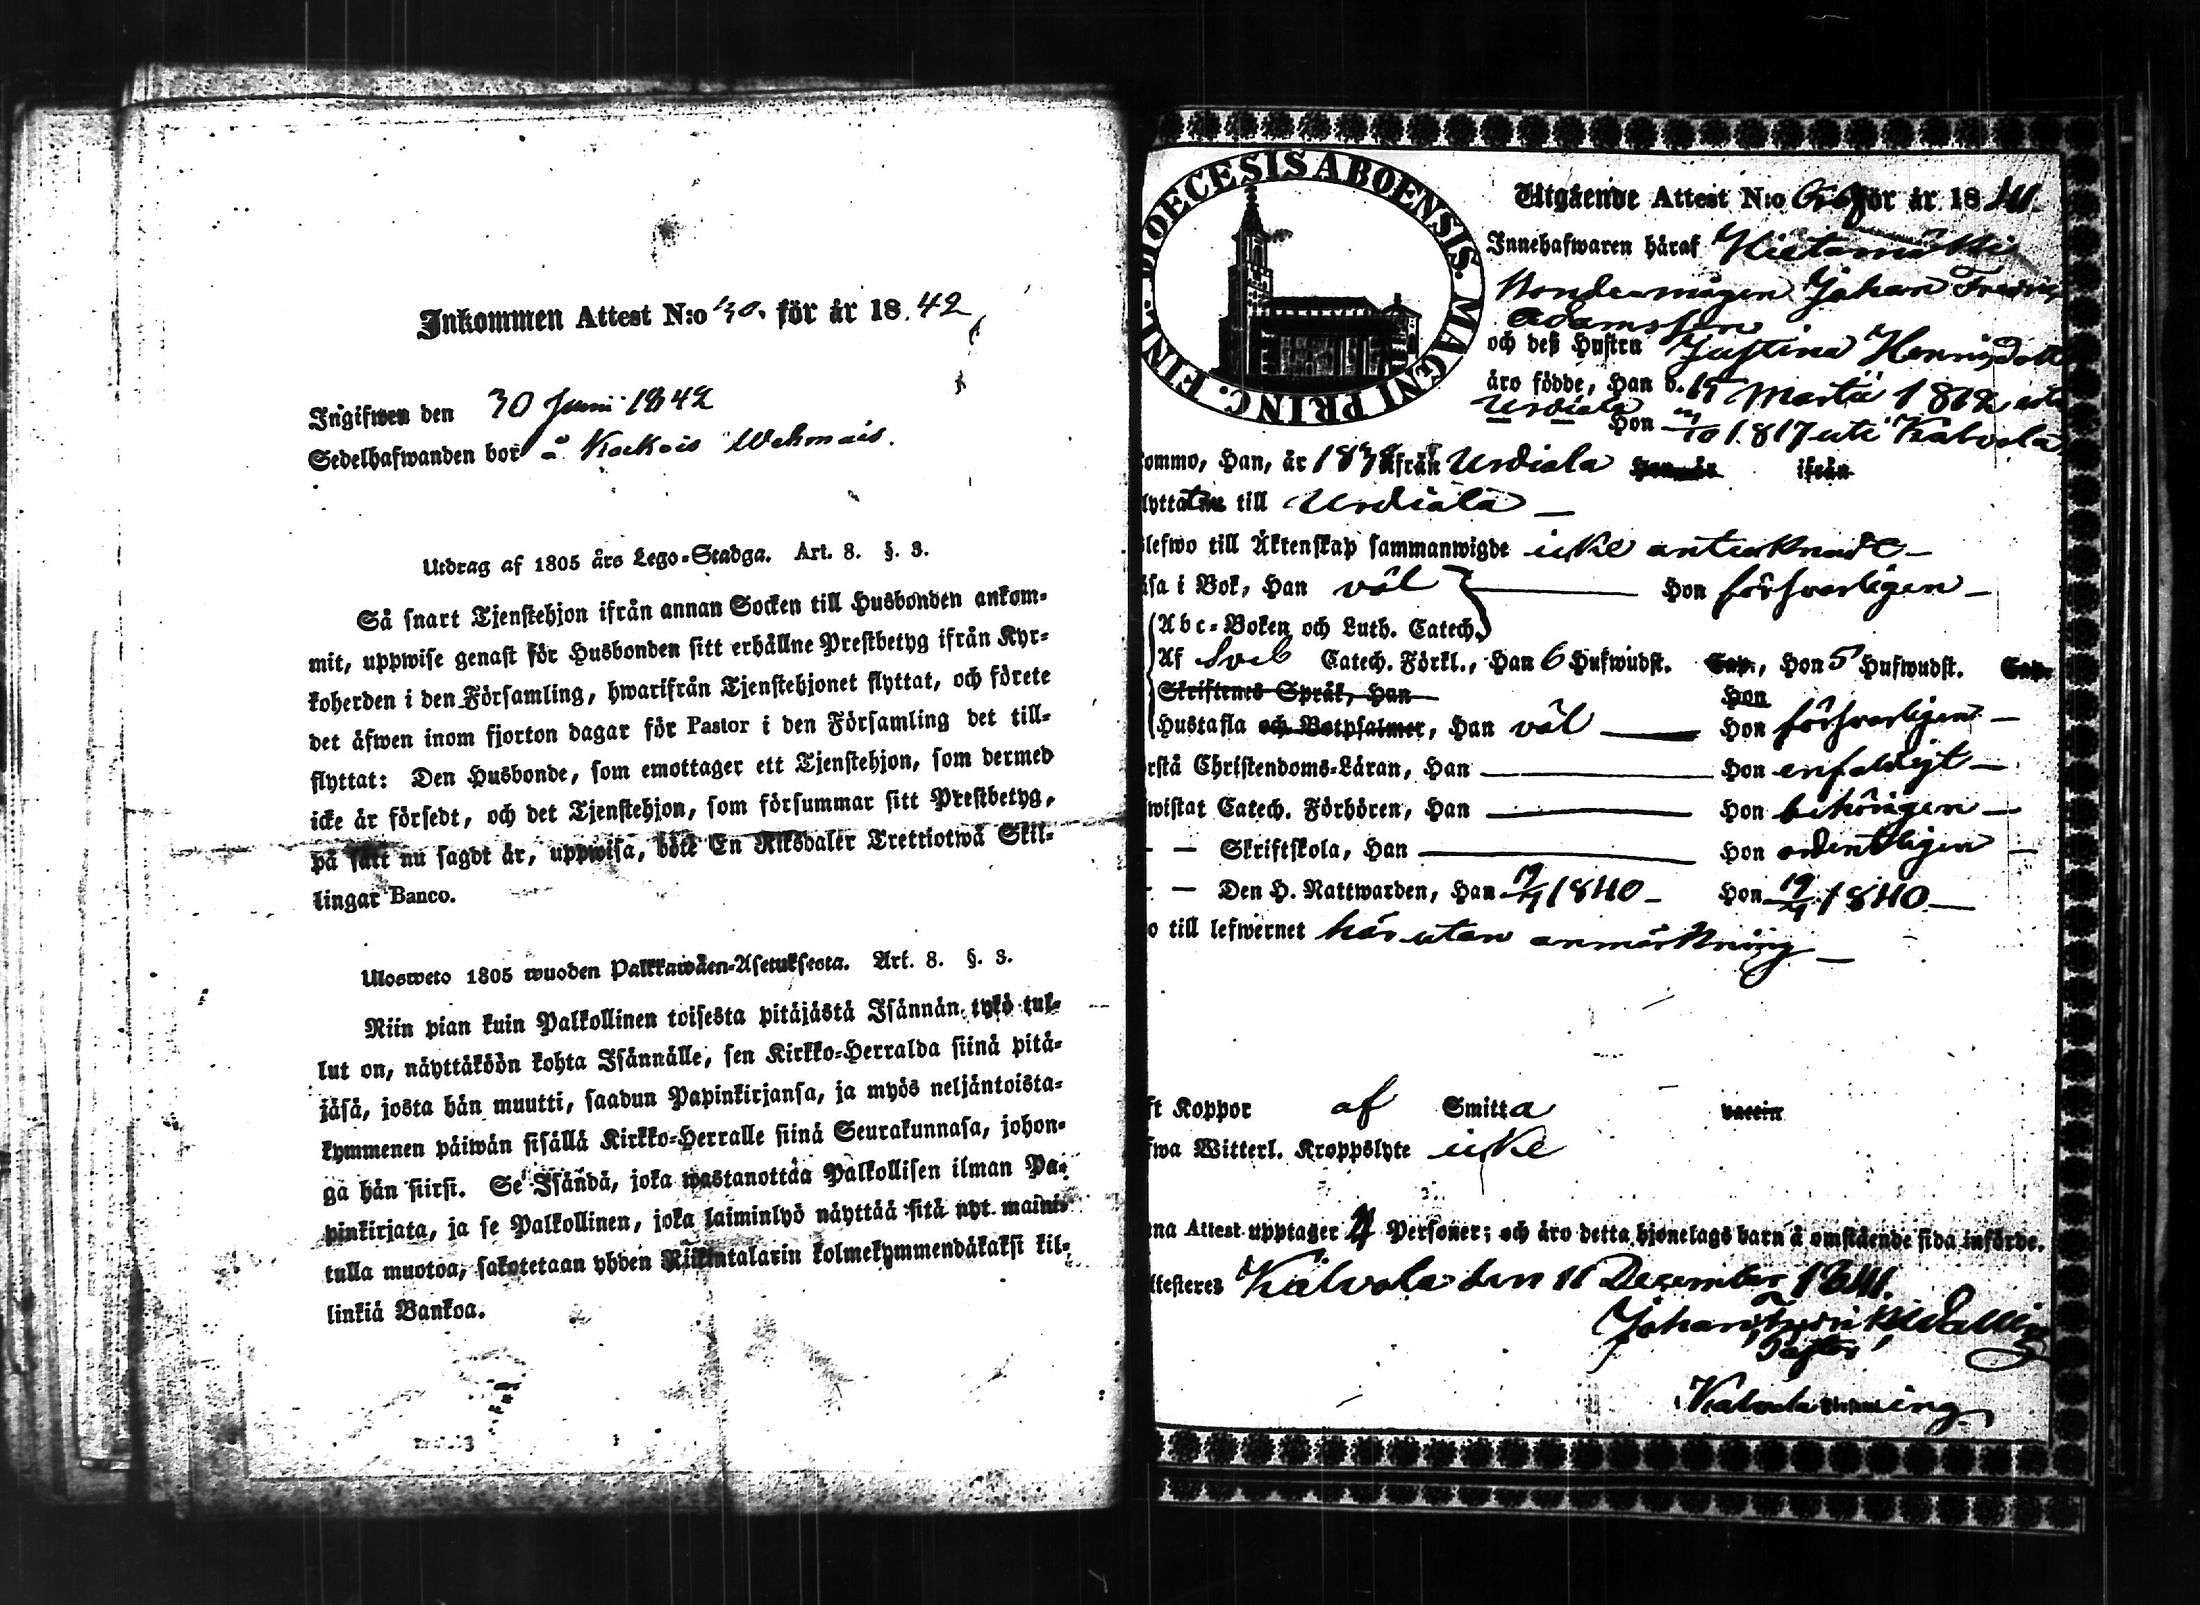 Inkommen Attest N:o 30. för år 1842
Ingifwen den 30 Juni 1842
Sedelhafwanden bor å Kockois Wehmais.
Utdrag af 1805 års Lego-Stadga. Art. 8. §. 3.
Så snart Tjenstehjon ifrån annan Socken till Husbonden ankom-
mit, uppwise genast för Husbonden sitt erhållne Prestbetyg ifrån Kyr-
koherden i den Församling, hwarifrån Tjenstehjonet flyttat, och förete
det äfwen inom fjorton dagar för Pastor i den Församling det till-
flyttat: Den Husbonde, som emottager ett Tjenstehjon, som dermed
icke är försedt, och det Tjenstehjon, som försummar sitt Prestbetyg,
på sätt nu sagdt är, uppwisa, böte En Riksdaler Trettiotwå Skil-
lingar Banco.
Ulosweto 1805 wuoden Palkkawäen-Asetuksesta. Art. 8. §. 3.
Niin pian kuin Palkollinen toisesta pitäjästä Isännän tykö tul-
lut on, näyttäköön kohta Isännälle, sen Kirkko-Herralda siinä pitä-
jäsä, josta hän muutti, saadun Papinkirjansa, ja myös neljäntoista-
kymmenen päiwän sisällä Kirkko-Herralle siinä Seurakunnasa, johon-
ga hän siirsi. Se Isändä, joka wastanottaa Palkollisen ilman Pa-
pinkirjata, ja se Palkollinen, joka laiminlyö näyttää sitä nyt maini-
tulla muotoa, sakotetaan yhden Riikintalarin kolmekymmendäkaksi kil-
linkiä Bankoa.
DIOECESIS ABOENSIS. MAGNI PRINC. FINL.
Utgående Attest N:o för år 1841.
Innehafwaren häraf Hietamäki
Bondemågen Johan Fredric
Adamsson
och deß Hustru Justina Henricsdott
äro födde, Han d. 15 Martii 1812 uti
Urdiala Hon 1817 uti Kalvola
kommo, Han, år ifrån Urdiala Hon år ifrån
flytta till Urdiala
lefwo till Äktenskap sammanwigde icke antecknadt
äsa i Bok, Han väl Hon försvarligen
Abc-Boken och Luth. Catech.
Af Sveb Catech. Förkl., Han 6 Hufwudst. Cap., Hon 5 Hufwudst. Cap.
Skriftenes Språk, Han Hon
Hustafla och Botpsalmer, Han väl Hon försvarligen
rstå Christendoms-Läran, Han Hon enfaldigt
wistat Catech. Förhören, Han Hon behörigen
— — Skriftskola, Han Hon ordentligen
— — Den H. Nattwarden, Han 19/4 1840 Hon 19/4 1840
o till lefwernet här utan anmärkning
ft Koppor af Smitta vaccin
fwa Witterl. Kroppslyte icke
na Attest upptager 4 Personer; och äro detta hjonelags barn å omstående sida införde.
ttesteres Kalvola den 11 December 1841.
Johan Fredrik Wallin
Pastor
Kalvola